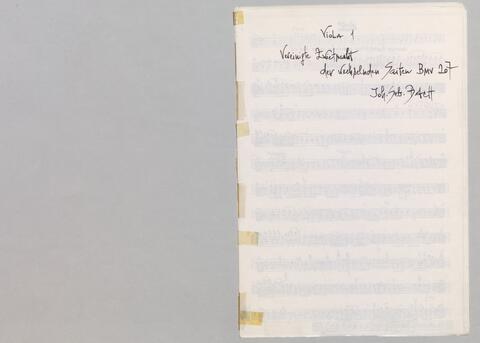 Viola 1
Vereinigte Zwietracht
der wechselnden Saiten BWV 207
Joh. Seb. Bach